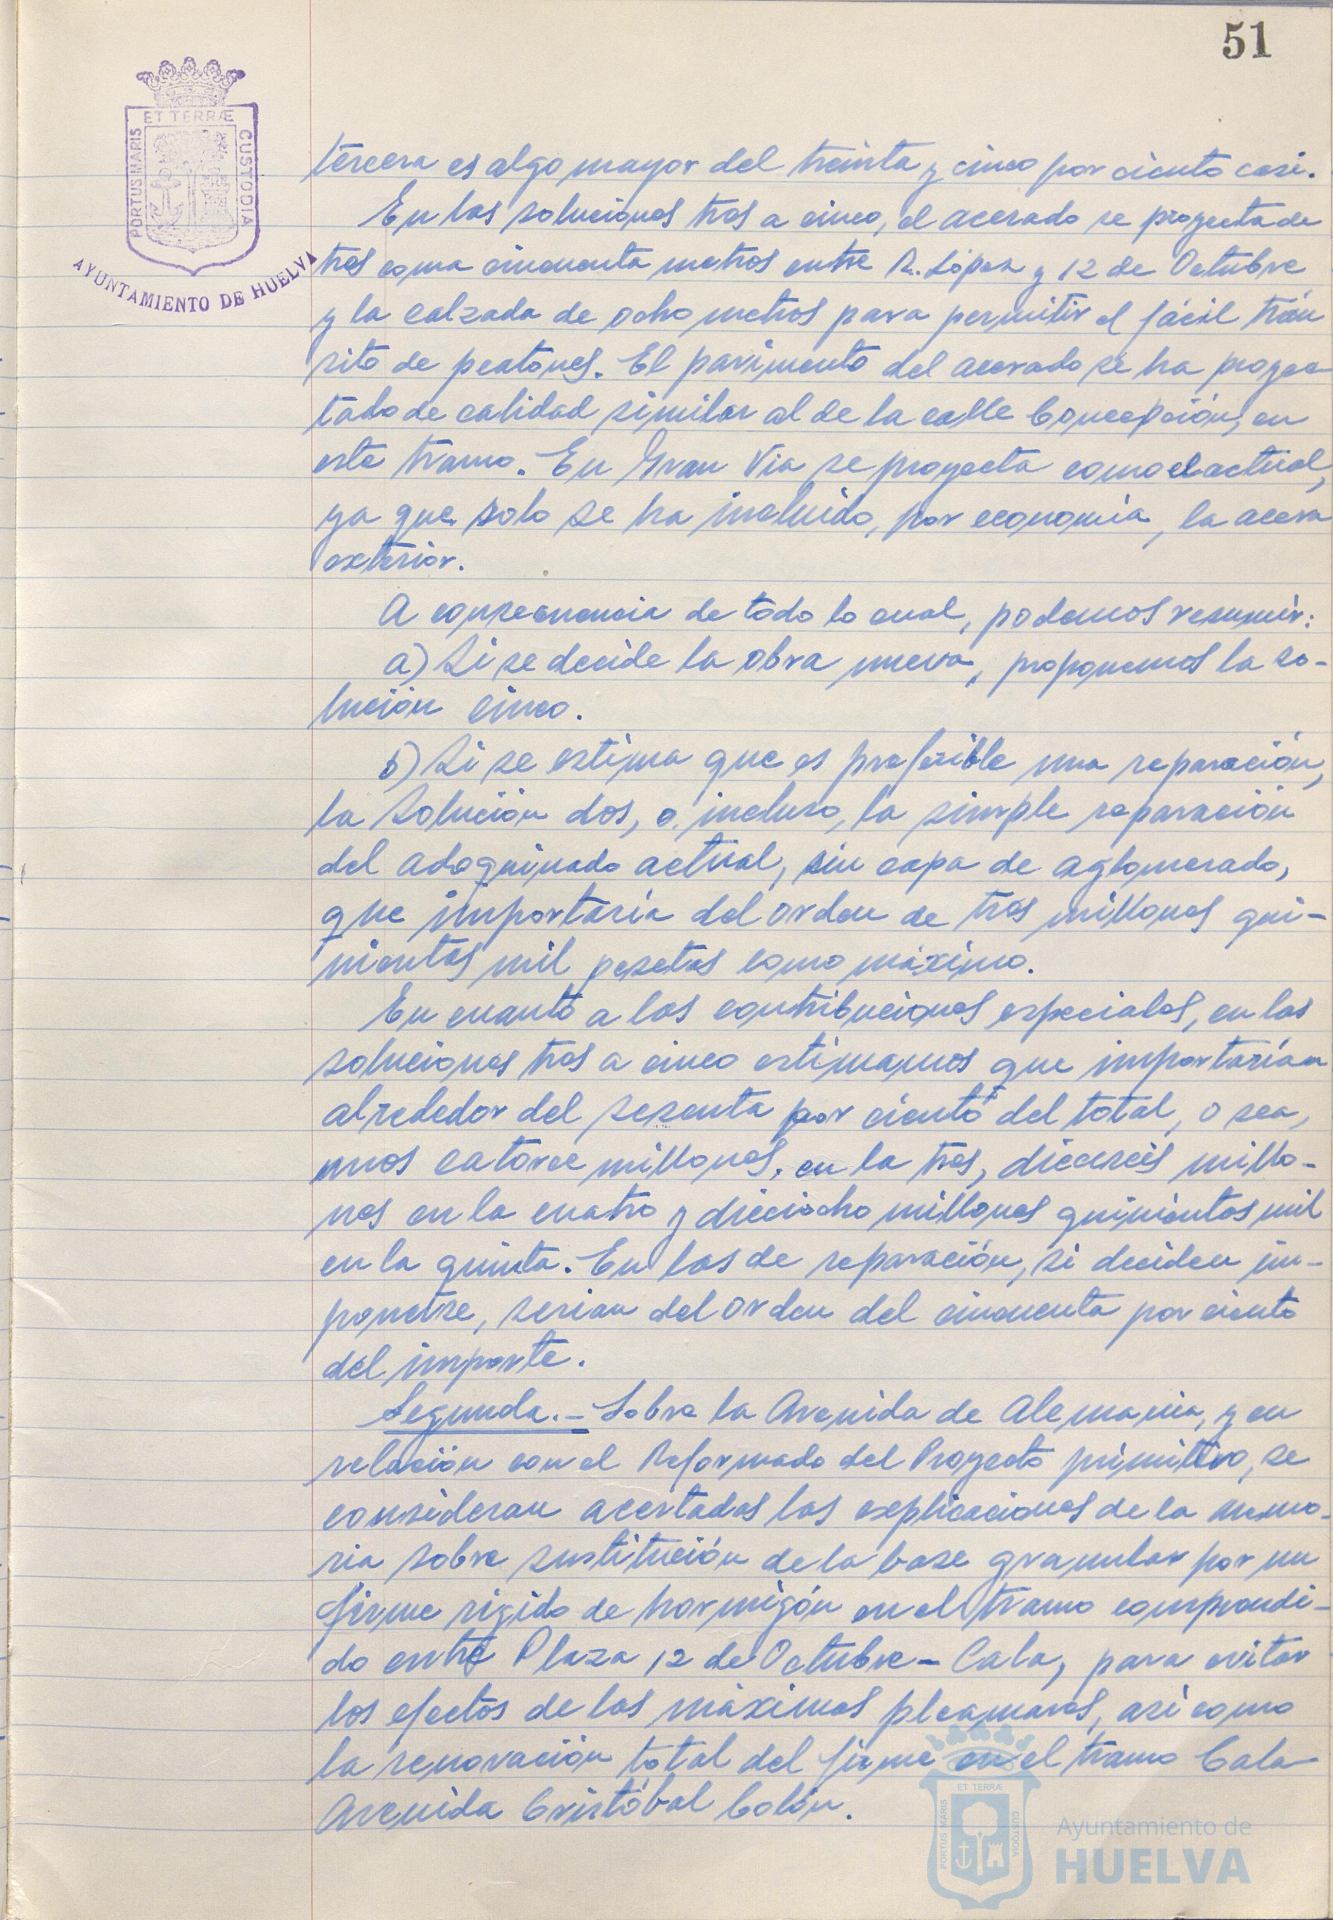 51
ET TERRÆ
PORTUS MARIS
CUSTODIA
AYUNTAMIENTO DE HUELVA
tercera es algo mayor del treinta y cinco por ciento casi.
En las soluciones tres a cinco, el acerado se proyecta de
tres coma cincuenta metros entre R. López y 12 de Octubre
y la calzada de ocho metros para permitir el fácil trán
sito de peatones. El pavimento del acerado se ha proyec-
tado de calidad similar al de la calle Concepción, en
este tramo. En Gran Via se proyecta como el actual,
ya que solo se ha incluido, por economía, la acera
exterior.
A consecuencia de todo lo cual, podemos resumir:
a) Si se decide la obra nueva, proponemos la so-
lución cinco.
b) Si se estima que es preferible una reparación,
la solución dos, o, incluso, la simple reparación
del adoquinado actual, sin capa de aglomerado,
que importaria del orden de tres millones qui-
nientas mil pesetas como máximo.
En cuanto a las contribuciones especiales, en las
soluciones tres a cinco estimamos que importarían
alrededor del sesenta por ciento del total, o sea,
unos catorce millones, en la tres, dieciseis millo-
nes en la cuatro y dieciocho millones quinientas mil
en la quinta. En las de reparación, si deciden im-
ponerse, serian del orden del cincuenta por ciento
del importe.
Segunda.- Sobre la Avenida de Alemania, y en
relación con el Reformado del Proyecto primitivo, se
consideran acertadas las explicaciones de la memo-
ria sobre sustitución de la base granular por un
firme rigido de hormigón en el tramo comprendi-
do entre Plaza 12 de Octubre - Cala, para evitar
los efectos de las máximas pleamares, asi como
la renovación total del firme en el tramo Cala-
Avenida Cristóbal Colón.
ET TERRÆ
PORTUS MARIS
CUSTODIA
Ayuntamiento de
HUELVA